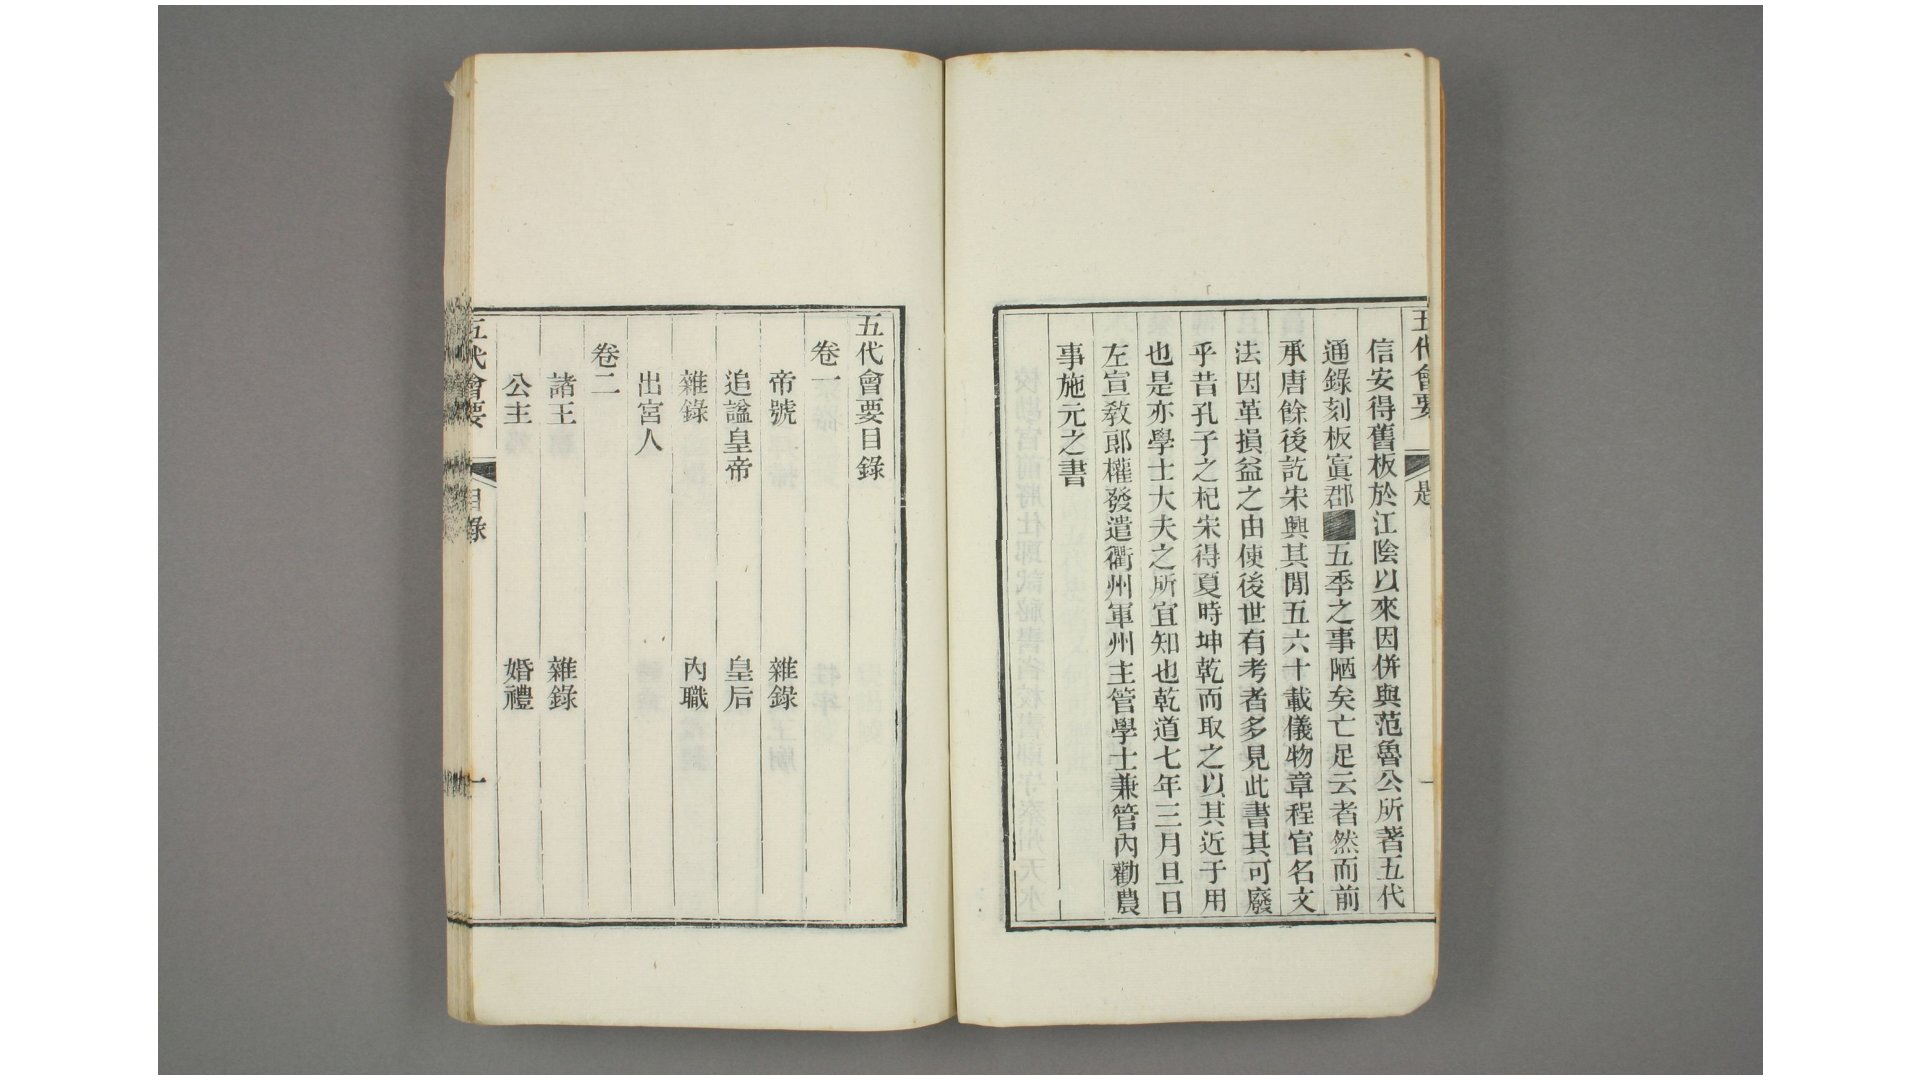 五代會要
信安得舊板於江陰以來因併與范魯公所著五代
通錄刻板寘郡五季之事陋矣亡足云者然而前
承唐餘後訖宋興其閒五六十載儀物章程官名文
法因革損益之由使後世有考者多見此書其可廢
乎昔孔子之杞宋得夏時坤乾而取之以其近于用
也是亦學士大夫之所宜知也乾道七年三月旦日
左宣敎郎權發遣衢州軍州主管學士兼管內勸農
事施元之書
五代會要目錄
卷一
帝號 雜錄
追謚皇帝 皇后
雜錄 內職
出宮人
卷二
諸王 雜錄
公主 婚禮
五代會要 目錄 一